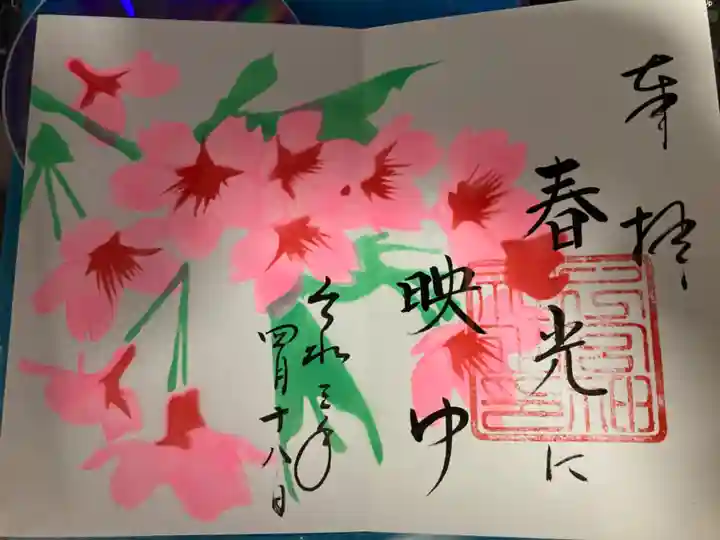 奉拝
春光に
映ゆ
令和三年
四月十八日